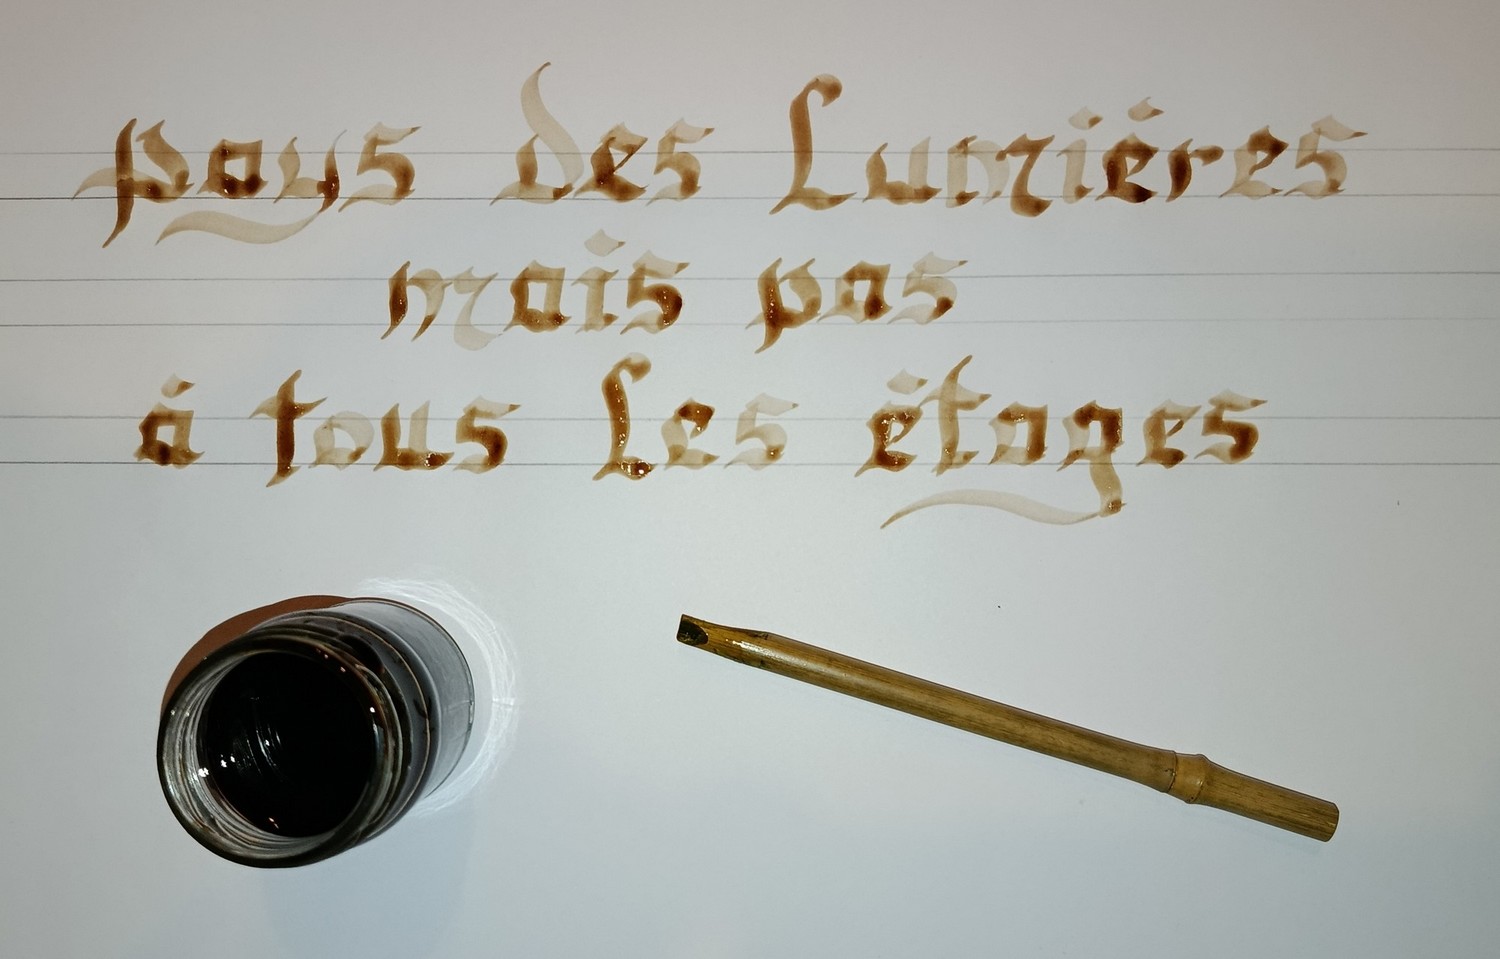 pays des Lumières
mais pas
à tous les étages